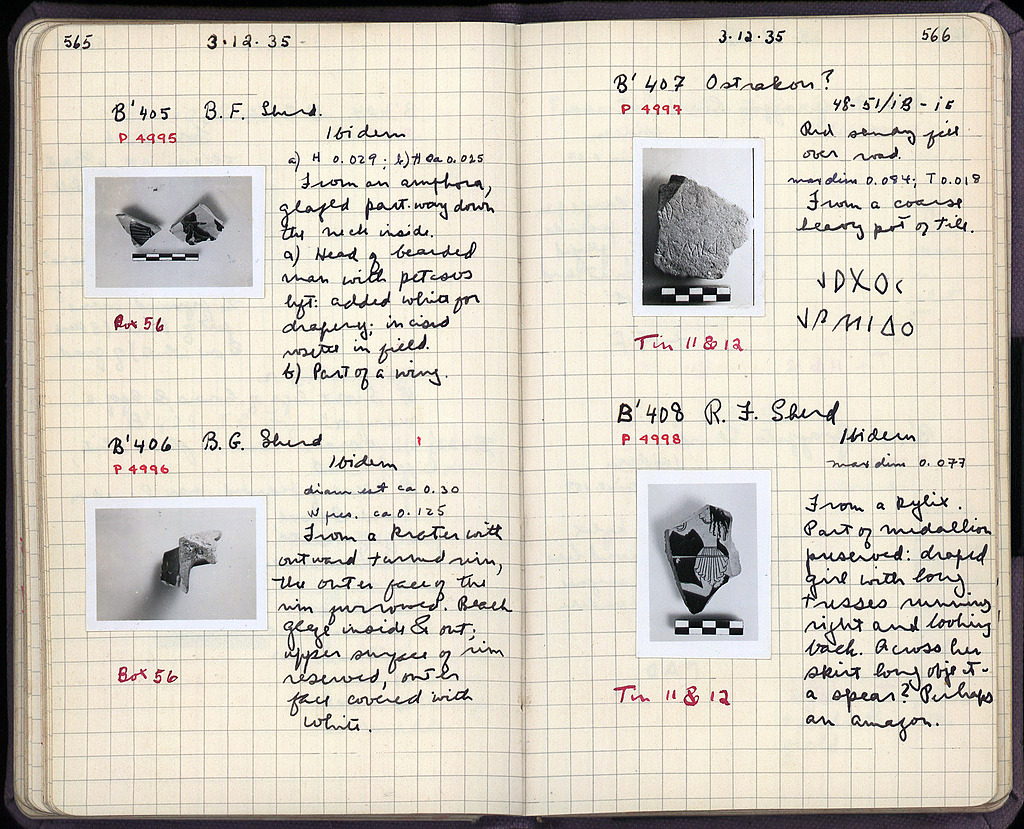 565
3·12·35
B'405 B.F. Sherd.
P 4995
Ibidem
a) H 0.029; b) H ca 0.025
From an amphora,
glazed part-way down
the neck inside.
a) Head of bearded
man with petasos
left: added white for
drapery; incised
rosette in field.
b) Part of a wing.
Box 56
B'406 B.G. Sherd
P 4996
Ibidem
diam est ca 0.30
W pres. ca 0.125
From a krater with
outward turned rim,
the outer face of the
rim furrowed. Black
glaze inside & out;
upper surface of rim
reserved, outer
face covered with
white.
Box 56
3·12·35
566
B'407 Ostrakon?
P 4997
48-51/ιβ-ιε
Red sandy fill
over road.
max dim 0.084; T 0.018
From a coarse
heavy pot or tile.
Tin 11 & 12
B'408 R.F. Sherd
P 4998
Ibidem
max dim 0.077
From a kylix.
Part of medallion
preserved: draped
girl with long
tresses running
right and looking
back. Across her
skirt long object-
a spear? Perhaps
an amazon.
Tin 11 & 12